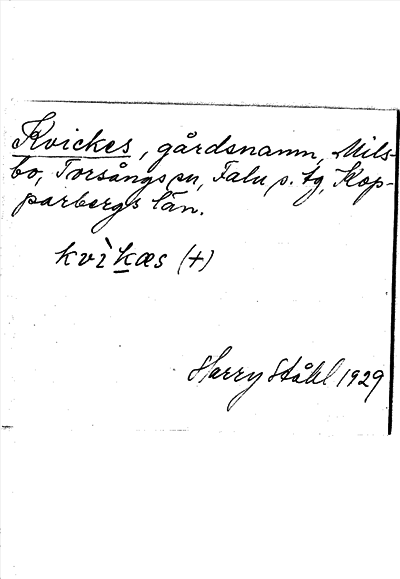 Kvickes, gårdsnamn, Mils-
bo, Torsångs sn, Falu s. tg, Kop-
parbergs län.
kvìkæs (+)
Harry Ståhl 1929